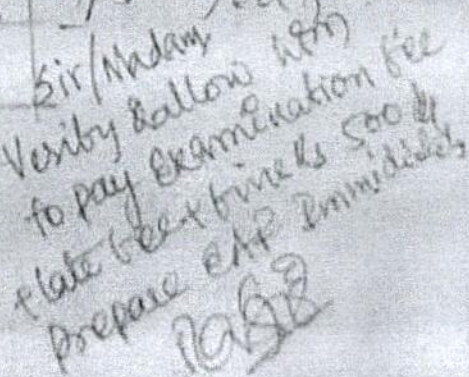 Sir/Madam
Verify & allow him
to pay Examination fee
+ late fee + fine Rs 500 &
prepare CAP Immidiately